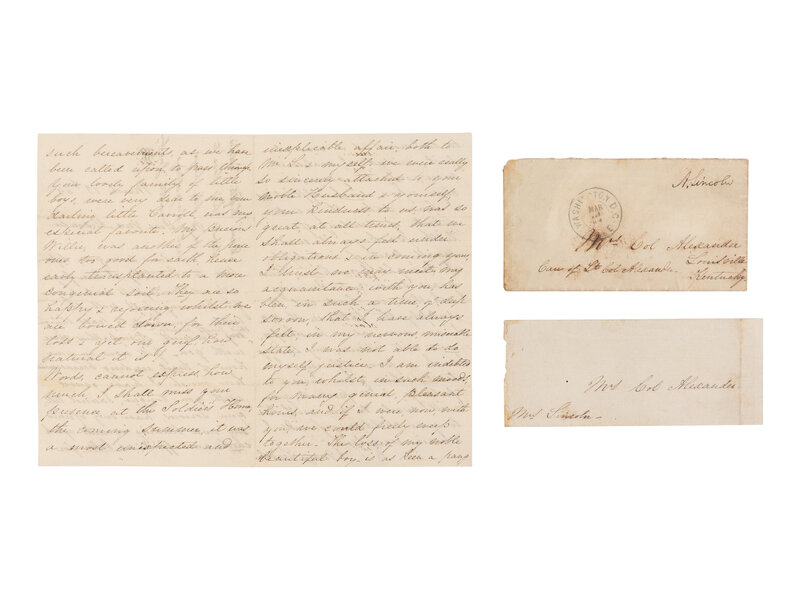 such bereavements, as we have
been called upon, to pass through
Your lovely family of little
boys, were very dear to me, your
darling little Carroll was my
especial favorite. My precious
Willie, was another of these
ones too good for earth, hence
early transplanted to a more
congenial soil. They are so
happy & rejoicing whilst we
are bowed down, for their
loss & yet our grief how
natural it is!
Words, cannot express how
much I shall miss your
presence at the Soldiers' Home
the coming summer, it was
a most unrestricted and
inexplicable affair, both to
Mr L. & myself, we were really
so sincerely attached to your
noble Husband & yourself
your kindness to us was so
great, at all times, that we
shall always feel under
obligations & in coming years
I trust we may meet, my
acquaintance with you, has
been in such a time of deep
sorrow, that I have always
felt in my nervous miserable
state, I was not able to do
myself justice. I am indebted
to you, whilst, in such moods,
for many genial, pleasant
hours, and if I were now with
you, we could freely weep
together — The loss of my noble
beautiful boy, is as keen a pang
A. Lincoln
WASHINGTON D.C.
MAR
Mrs Col Alexander
Louisville
Care of Lt Col Alexander — Kentucky
Mrs Col Alexander
Mrs Lincoln —